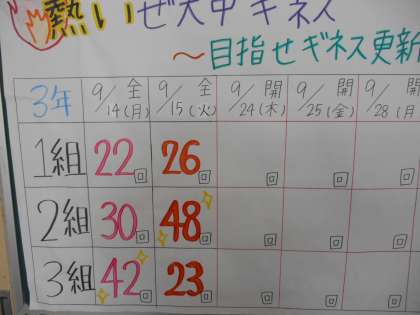 熱いぜ大中ギネス
〜目指せギネス更新
3年 9/14(月) 全 9/15(火) 全 9/24(木) 開 9/25(金) 開 9/28(月 開
1組 22回 26回 回 回 回
2組 30回 48回 回 回 回
3組 42回 23回 回 回 回